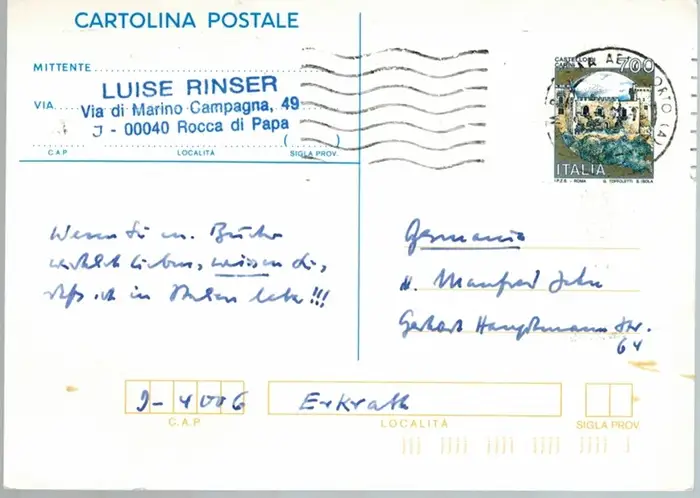 CARTOLINA POSTALE
MITTENTE
LUISE RINSER
VIA
Via di Marino Campagna, 49
J - 00040 Rocca di Papa
( )
C.A.P. LOCALITÀ SIGLA PROV.
CASTELLO DI
700
ITALIA
I.P.Z.S. - ROMA
Wenn Si m. Bücher
wirklich lieben, wissen Si,
daß ich in Italien lebe!!!
Germania
H. Manfred John
Gerhart Hauptmann Str.
64
D-4006 Erkrath
C.A.P. LOCALITÀ SIGLA PROV.